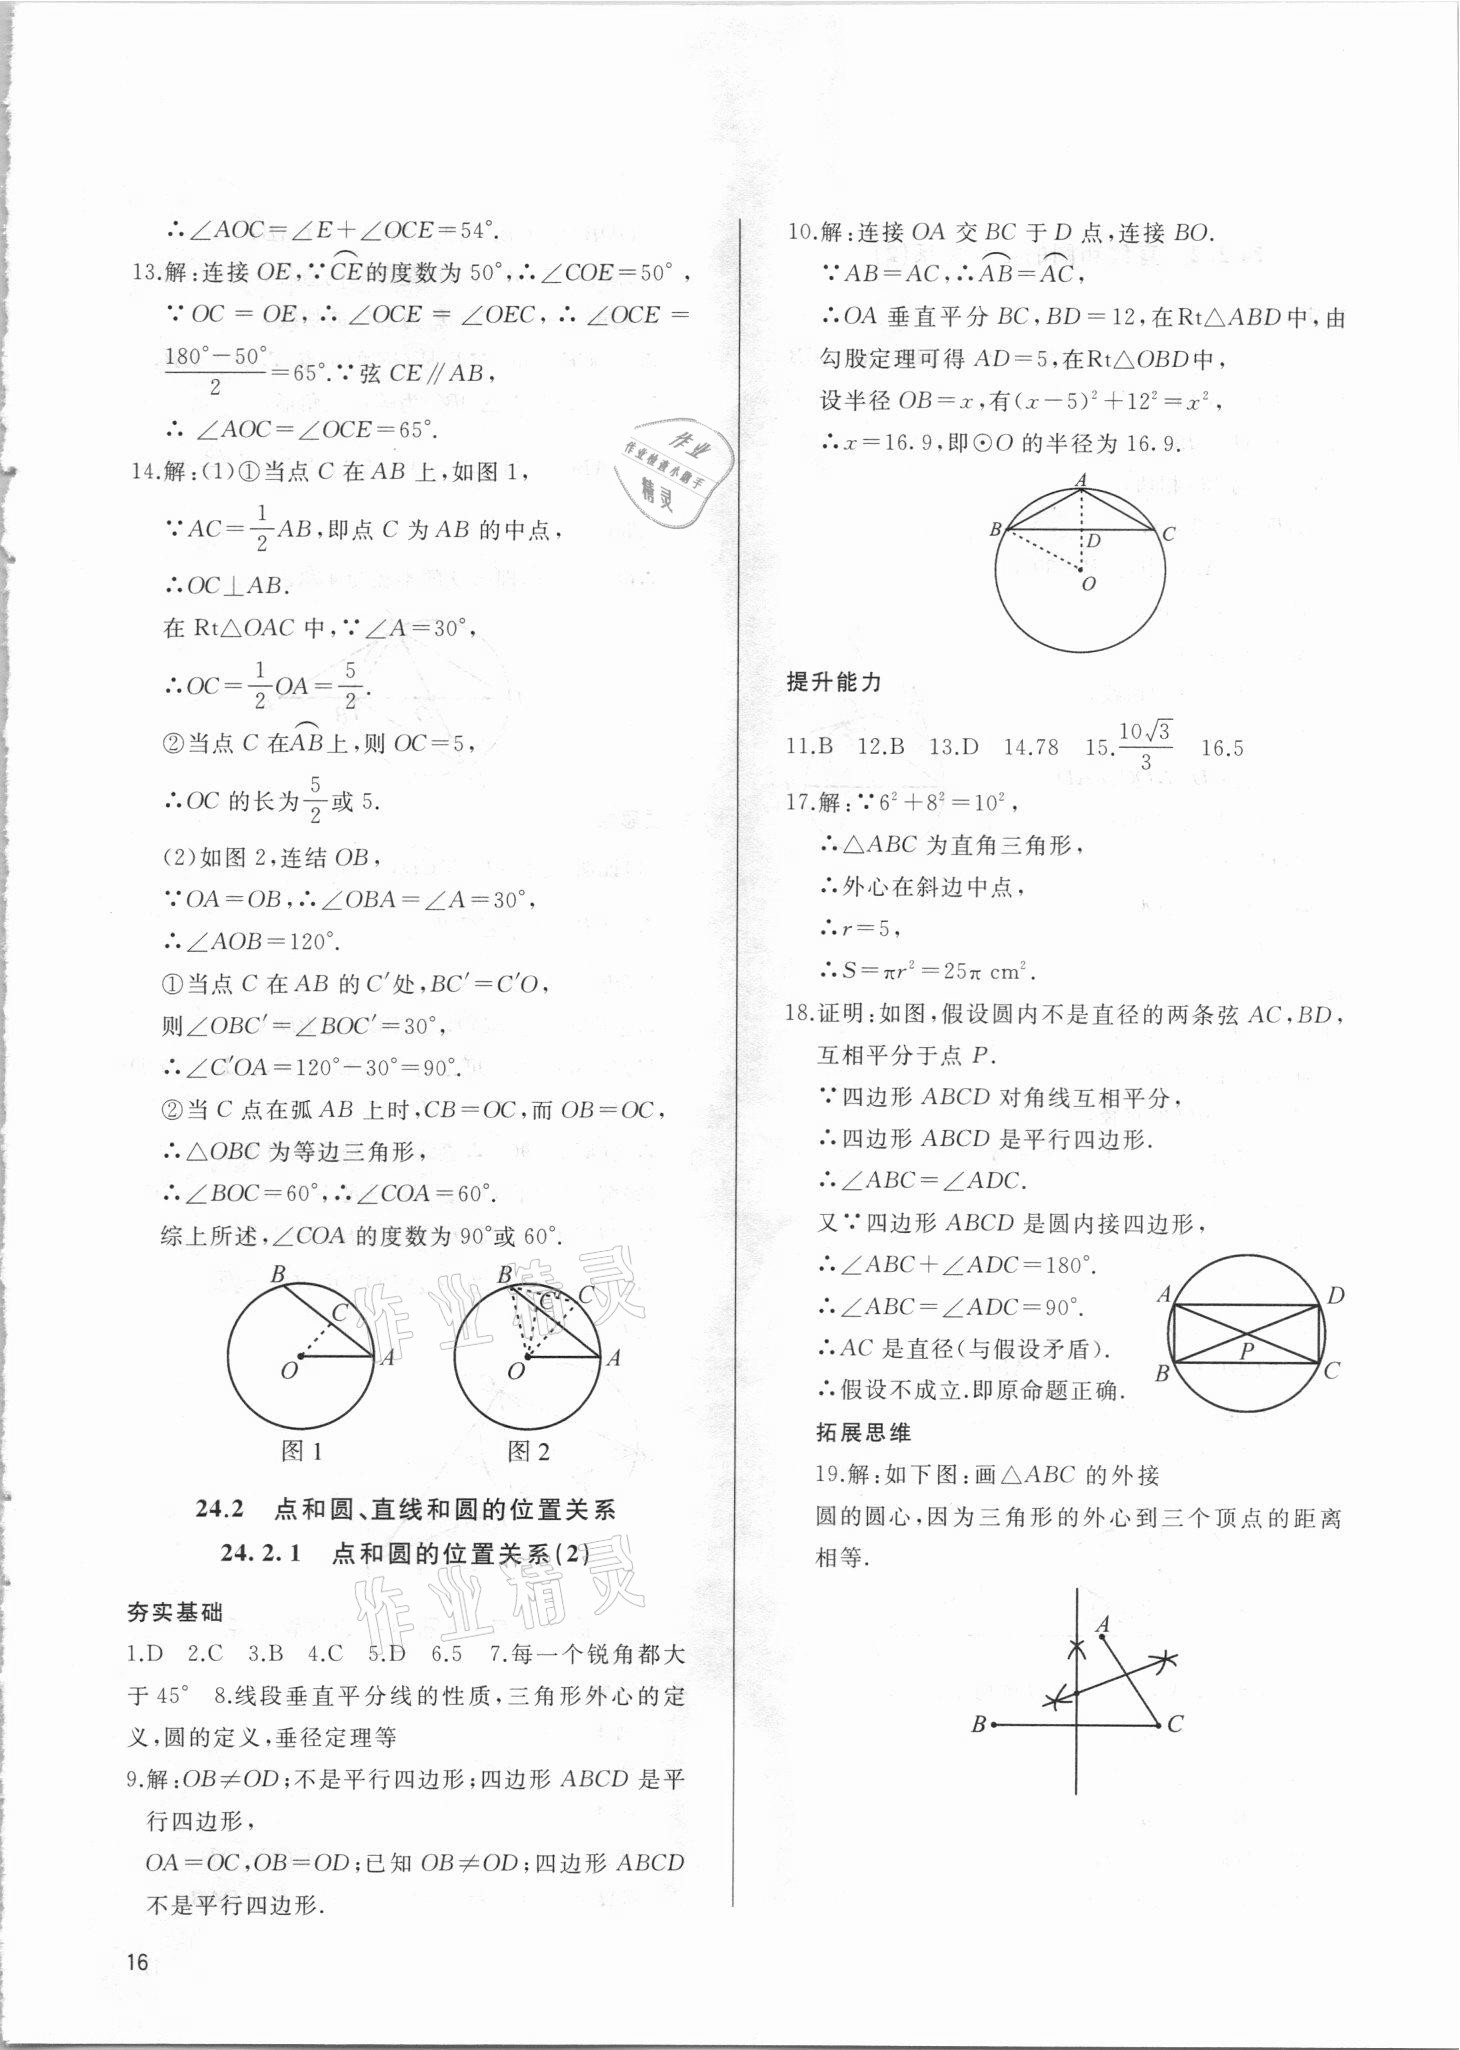 ∴∠AOC=∠E+∠OCE=54°.
13.解:连接 OE,∵CE的度数为 50°,∴∠COE=50°,
∵ OC = OE, ∴ ∠OCE = ∠OEC, ∴ ∠OCE =
(180°-50°)/2=65°.∵弦 CE∥AB,
∴ ∠AOC=∠OCE=65°.
14.解:(1)①当点 C 在 AB 上,如图 1,
∵AC=1/2AB,即点 C 为 AB 的中点,
∴OC⊥AB.
在 Rt△OAC 中,∵∠A=30°,
∴OC=1/2OA=5/2.
②当点 C 在AB上,则 OC=5,
∴OC 的长为5/2或 5.
(2)如图 2,连结 OB,
∵OA=OB,∴∠OBA=∠A=30°,
∴∠AOB=120°.
①当点 C 在 AB 的 C′处,BC′=C′O,
则∠OBC′=∠BOC′=30°,
∴∠C′OA=120°-30°=90°.
②当 C 点在弧 AB 上时,CB=OC,而 OB=OC,
∴△OBC 为等边三角形,
∴∠BOC=60°,∴∠COA=60°.
综上所述,∠COA 的度数为 90°或 60°.
B
C
O
A
图 1
B
C
C
O
A
图 2
24.2 点和圆、直线和圆的位置关系
24.2.1 点和圆的位置关系(2)
夯实基础
1.D 2.C 3.B 4.C 5.D 6.5 7.每一个锐角都大
于 45° 8.线段垂直平分线的性质,三角形外心的定
义,圆的定义,垂径定理等
9.解:OB≠OD;不是平行四边形;四边形 ABCD 是平
行四边形,
OA=OC,OB=OD;已知 OB≠OD;四边形 ABCD
不是平行四边形.
16
10.解:连接 OA 交 BC 于 D 点,连接 BO.
∵AB=AC,∴AB=AC,
∴OA 垂直平分 BC,BD=12,在Rt△ABD中,由
勾股定理可得 AD=5,在Rt△OBD中,
设半径 OB=x,有(x-5)²+12²=x²,
∴x=16.9,即⊙O 的半径为 16.9.
A
B
D
C
O
提升能力
11.B 12.B 13.D 14.78 15.10√3/3 16.5
17.解:∵6²+8²=10²,
∴△ABC 为直角三角形,
∴外心在斜边中点,
∴r=5,
∴S=πr²=25π cm².
18.证明:如图,假设圆内不是直径的两条弦 AC,BD,
互相平分于点 P.
∵四边形 ABCD 对角线互相平分,
∴四边形 ABCD 是平行四边形.
∴∠ABC=∠ADC.
又∵四边形 ABCD 是圆内接四边形,
∴∠ABC+∠ADC=180°.
∴∠ABC=∠ADC=90°.
∴AC 是直径(与假设矛盾).
∴假设不成立.即原命题正确.
A
D
P
B
C
拓展思维
19.解:如下图:画△ABC 的外接
圆的圆心,因为三角形的外心到三个顶点的距离
相等.
A
B
C
作业
作业检查小助手
精灵
作业精灵
作业精灵